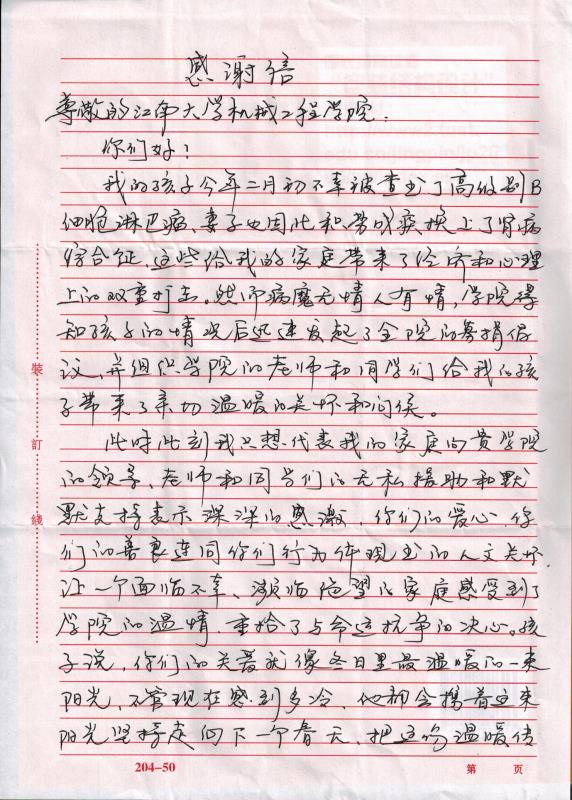 感谢信
尊敬的江南大学机械工程学院.
你们好！
我的孩子今年二月初不幸被查出了高级别B
细胞淋巴瘤、妻子也因此积劳成疾换上了肾病
综合征，这些给我的家庭带来了经济和心理
上的双重打击。然而病魔无情人有情，学院得
知孩子的情况后迅速发起了全院的募捐倡
议，并组织学院的老师和同学们给我的孩
子带来了亲切温暖的关怀和问侯。
此时此刻我只想代表我的家庭向贵学院
的领导、老师和同学们的无私援助和默
默支持表示深深的感激，你们的爱心，你
们的善良连同你们行为体现出的人文关怀
让一个面临不幸、濒临绝望的家庭感受到了
学院的温情，重拾了与命运抗争的决心。孩
子说，你们的关爱就像冬日里最温暖的一束
阳光，不管现在感到多冷，他都会携着这束
阳光坚持走向下一个春天，把这份温暖传
裝
訂
綫
204-50
第 页